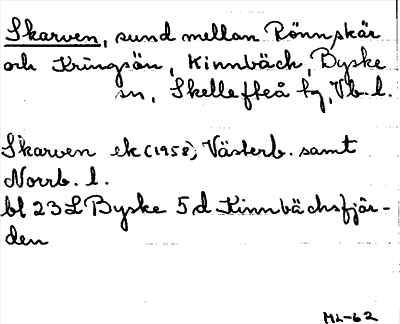 Skarven, sund mellan Rönnskär
och Kringsön, Kinnbäck, Byske
sn, Skellefteå kg, Vb. l.
Skarven ek (1958), Västerb. samt
Norrb. l.
bl 23 L Byske 5 d Kinnbäcksfjär-
den
ML-62